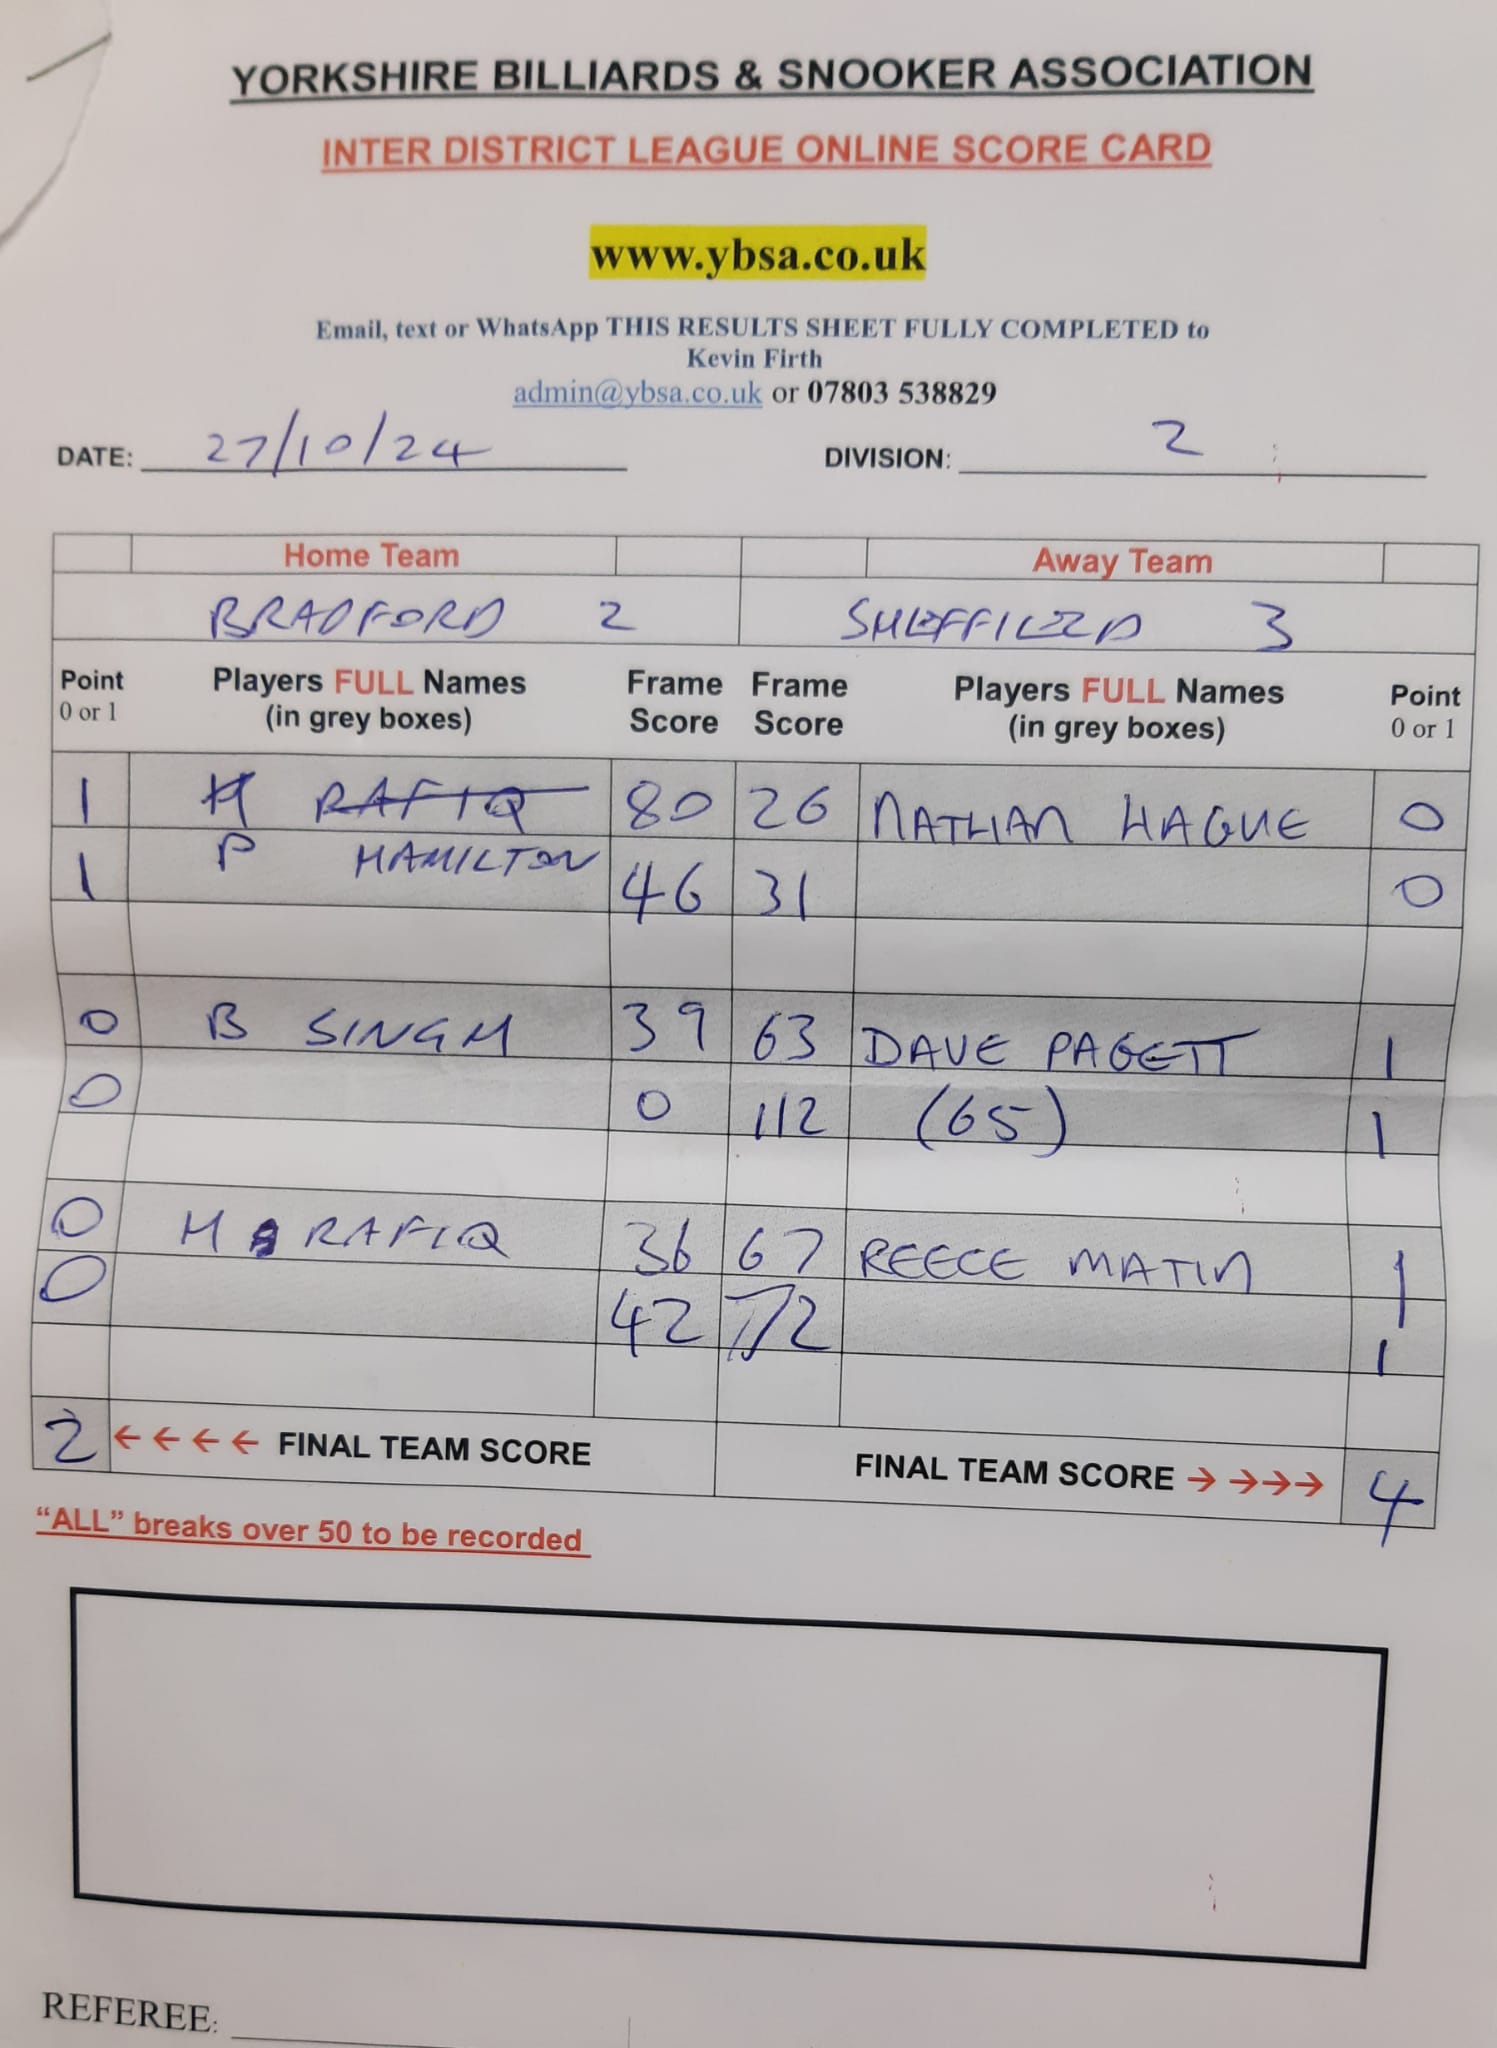 YORKSHIRE BILLIARDS & SNOOKER ASSOCIATION
INTER DISTRICT LEAGUE ONLINE SCORE CARD
www.ybsa.co.uk
Email, text or WhatsApp THIS RESULTS SHEET FULLY COMPLETED to
Kevin Firth
admin@ybsa.co.uk or 07803 538829
DATE: 27/10/24 DIVISION: 2
Home Team Away Team
BRADFORD 2 SHEFFILED 3
Point Players FULL Names Frame Frame Players FULL Names Point
0 or 1 (in grey boxes) Score Score (in grey boxes) 0 or 1
1 H RAFIQ 80 26 NATHAN HAGUE 0
1 P HAMILTON 46 31 0
0 B SINGH 39 63 DAVE PAGETT 1
0 0 112 (65) 1
0 H RAFIQ 36 67 REECE MATIN 1
0 42 72 1
2 ←←←← FINAL TEAM SCORE FINAL TEAM SCORE →→→→ 4
“ALL” breaks over 50 to be recorded
REFEREE: